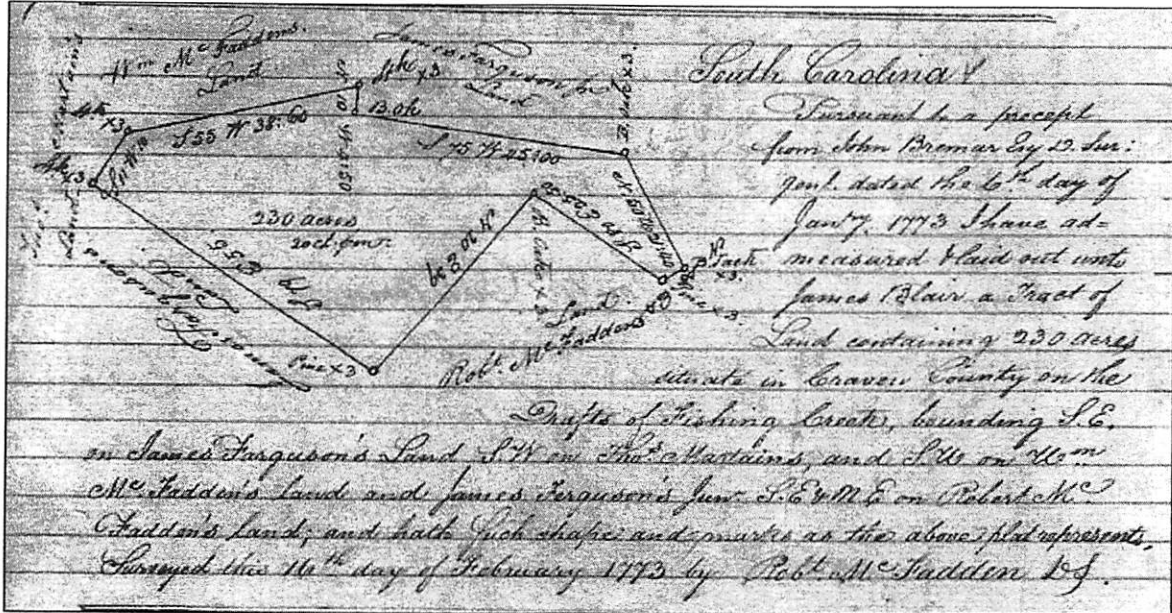 Wm McFadden's
Land
James Farguson jnr
Land
4k x3
4k x3
4k x3
S 55 W 38:60
N 10 W 3:50
B.Ok
S 75 W 25:00
B. Oak x3.
230 acres
20 ch. pr in
N 20 E 39
S 50 E 25:50
R. Oak x3
B Jack
x3.
Pine x3.
Pine x3
James Farguson's
Land
Land
Robt. McFadden's
South Carolina }
Pursuant to a precept
from John Bremar Esq D. Sur:
Genl. dated the 6th day of
Jany. 1773 I have ad=
measured & laid out unto
James Blair a Tract of
Land containing 230 acres
situate in Craven County on the
Drafts of Fishing Creek, bounding S.E.
on James Farguson's Land S.W on Thos. Martains, and S.W on Wm
McFadden's land and James Ferguson's Junr. S.E & N.E on Robert Mc
Fadden's land; and hath such shape and marks as the above plat represents.
Surveyed this 16th day of February 1773 by Robt. McFadden DS.